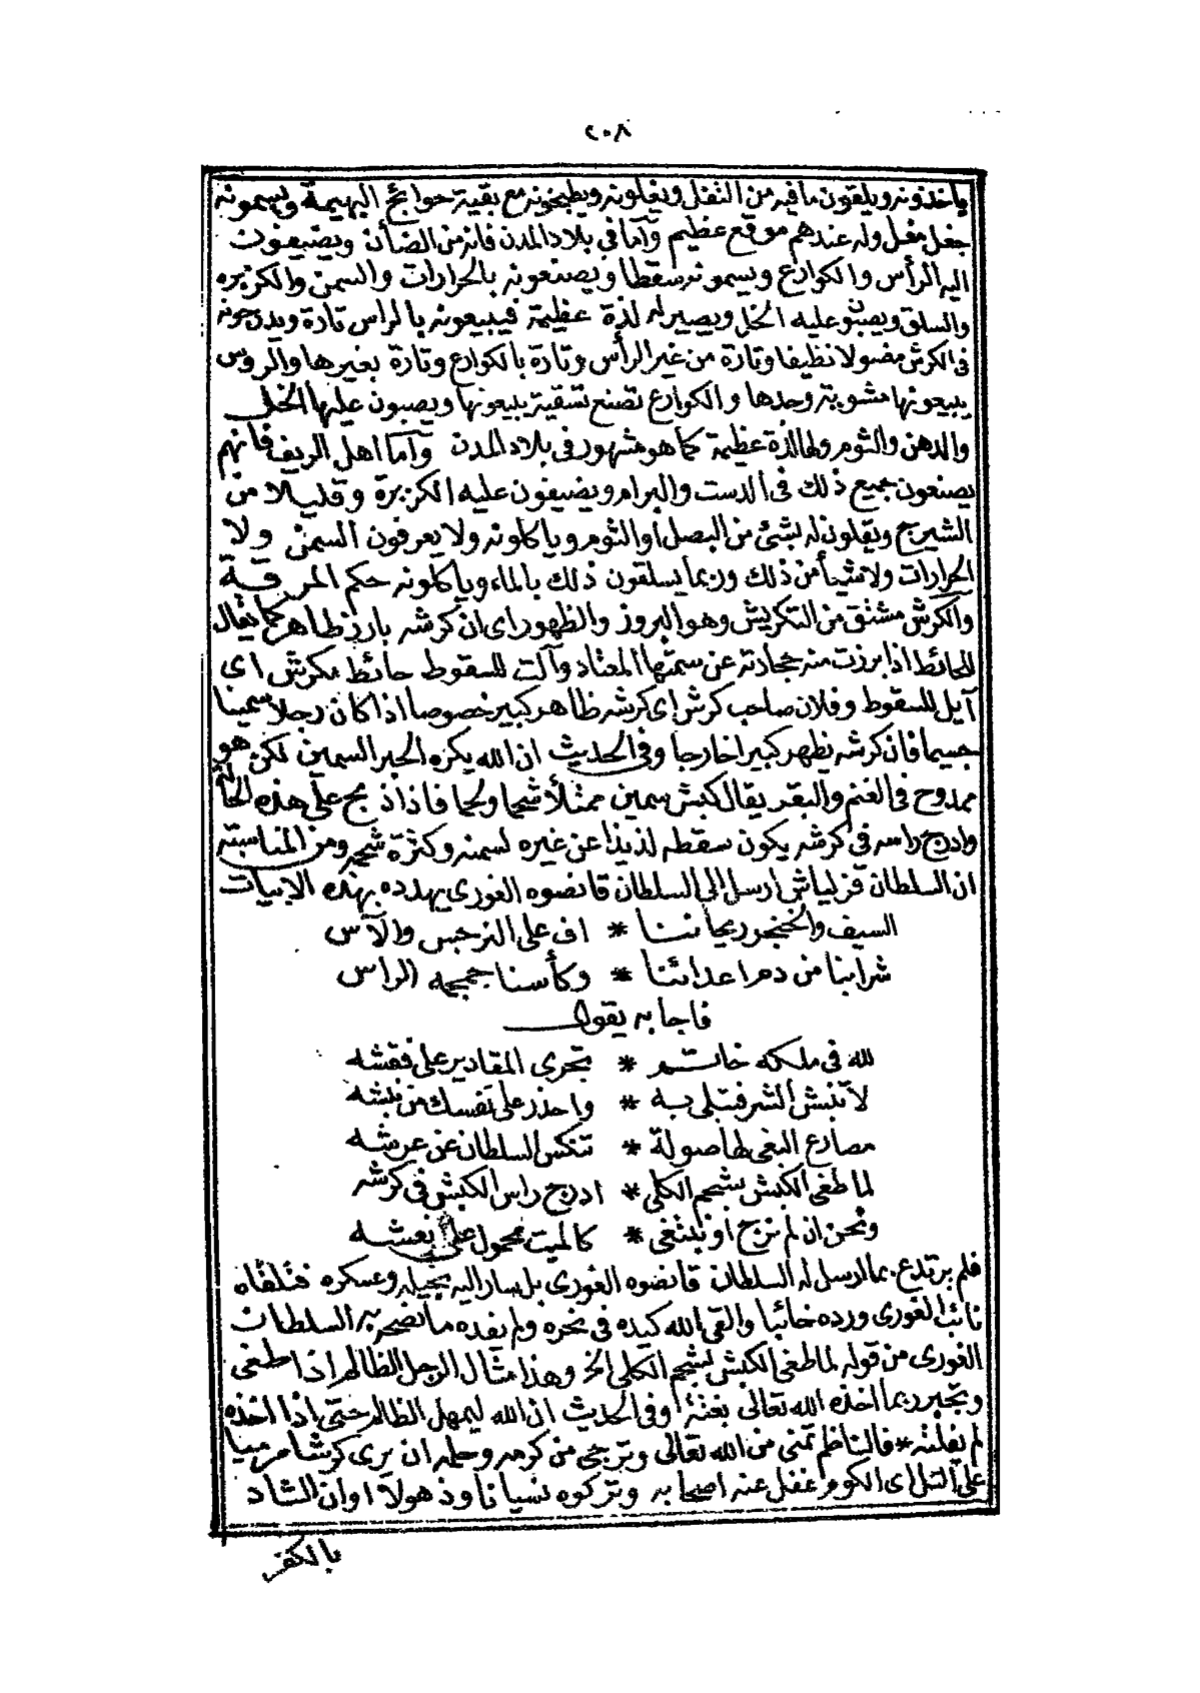 ٢٠٨
ياخذونه ويلقون ما فيه من الثفل ويغلونه ويطبخونه مع بقية حوائج البهيمة ويسمونه
جغل مغل وله عندهم موقع عظيم وآما فى بلاد المدن فانه من الضأن ويضيفون
اليه الرأس والكوارع ويسمونه سقطا ويصنعونه بالحرارات والسمن والكزبره
والسلق ويصبون عليه الخل ويصير له لذة عظيمة فيبيعونه بالراس تارة ويدرجونه
فى الكرش مضولا نظيفا وتارة من غير الرأس وتارة بالكوارع وتارة بغيرها والروس
يبيعونها مشوية وحدها والكوارع تصنع تسقية يبيعونها ويصبون عليها الخل
والدهن والثوم ولها لذة عظيمة كما هو مشهور فى بلاد المدن وآما اهل الريف فانهم
يصنعون جميع ذلك فى الدست والبرام ويضيفون عليه الكزبرة وقليلا من
الشيرج ويقلون له بشئ من البصل او الثوم وياكلونه ولا يعرفون السمن ولا
الحرارات ولا شيأ من ذلك وربما يسلقون ذلك بالماء وياكلونه حكم المرقة
والكرش مشتق من التكريش وهو البروز والظهور اى ان كرشه بارز ظاهر كما يقال
للحائط اذا برزت منه حجارته عن سمتها المعتاد وآلت للسقوط حائط مكرش اى
آيل للسقوط وفلان صاحب كرش اى كرشه ظاهر كبير خصوصا اذا كان رجلا سمينا
جسيما فان كرشه يظهر كبيرا خارجا وفى الحديث ان الله يكره الحبر السمين لكن هو
ممدوح فى الغنم والبقر يقال كبش سمين ممتلأ شحما ولحما فاذا ذبح على هذه الحالة
وادرج راسه فى كرشه يكون سقطه لذيذا عن غيره لسمنه وكثرة شحمه ومن المناسبته
ان السلطان قزلباش ارسل الى السلطان قانضوه الغورى يهدده بهذه الابيات
السيف والخنجر ريحاننا * اف على النرجس والآس
شرابنا من دم اعدائنا * وكأسنا جمجمه الراس
فاجابه يقول
لله فى ملكه خاتم * تجرى المقادير على نقشه
لا تنبش الشر فتبلى به * واحذر على نفسك من نبشه
مصارع البغى لها صولة * تنكس السلطان عن عرشه
لما طغى الكبش بشحم الكلى * ادرج راس الكبش فى كرشه
ونحن ان لم نرج او نلتغى * كالميت محمول على نعشه
فلم يرتدع بما ارسل له السلطان قانضوه الغورى بل سار اليه بخيله وعسكره فتلقاه
نائب الغورى ورده خائبا والقى الله كيده فى نحره ولم يفده ما نصحه به السلطان
الغورى من قوله لما طغى الكبش بشحم الكلى الخ وهذا مثال الرجل الظالم اذا طغى
وتجبر ربما اخذه الله تعالى بغتة وفى الحديث ان الله ليمهل الظالم حتى اذا اخذه
لم يفلته * فالناظم تمنى من الله تعالى وترجى من كرمه وحلمه ان يرى كرشا مرميا
على التل اى الكوم غفل عنه اصحابه وتركوه نسيانا وذهولا اوان الشاد
بالكفر